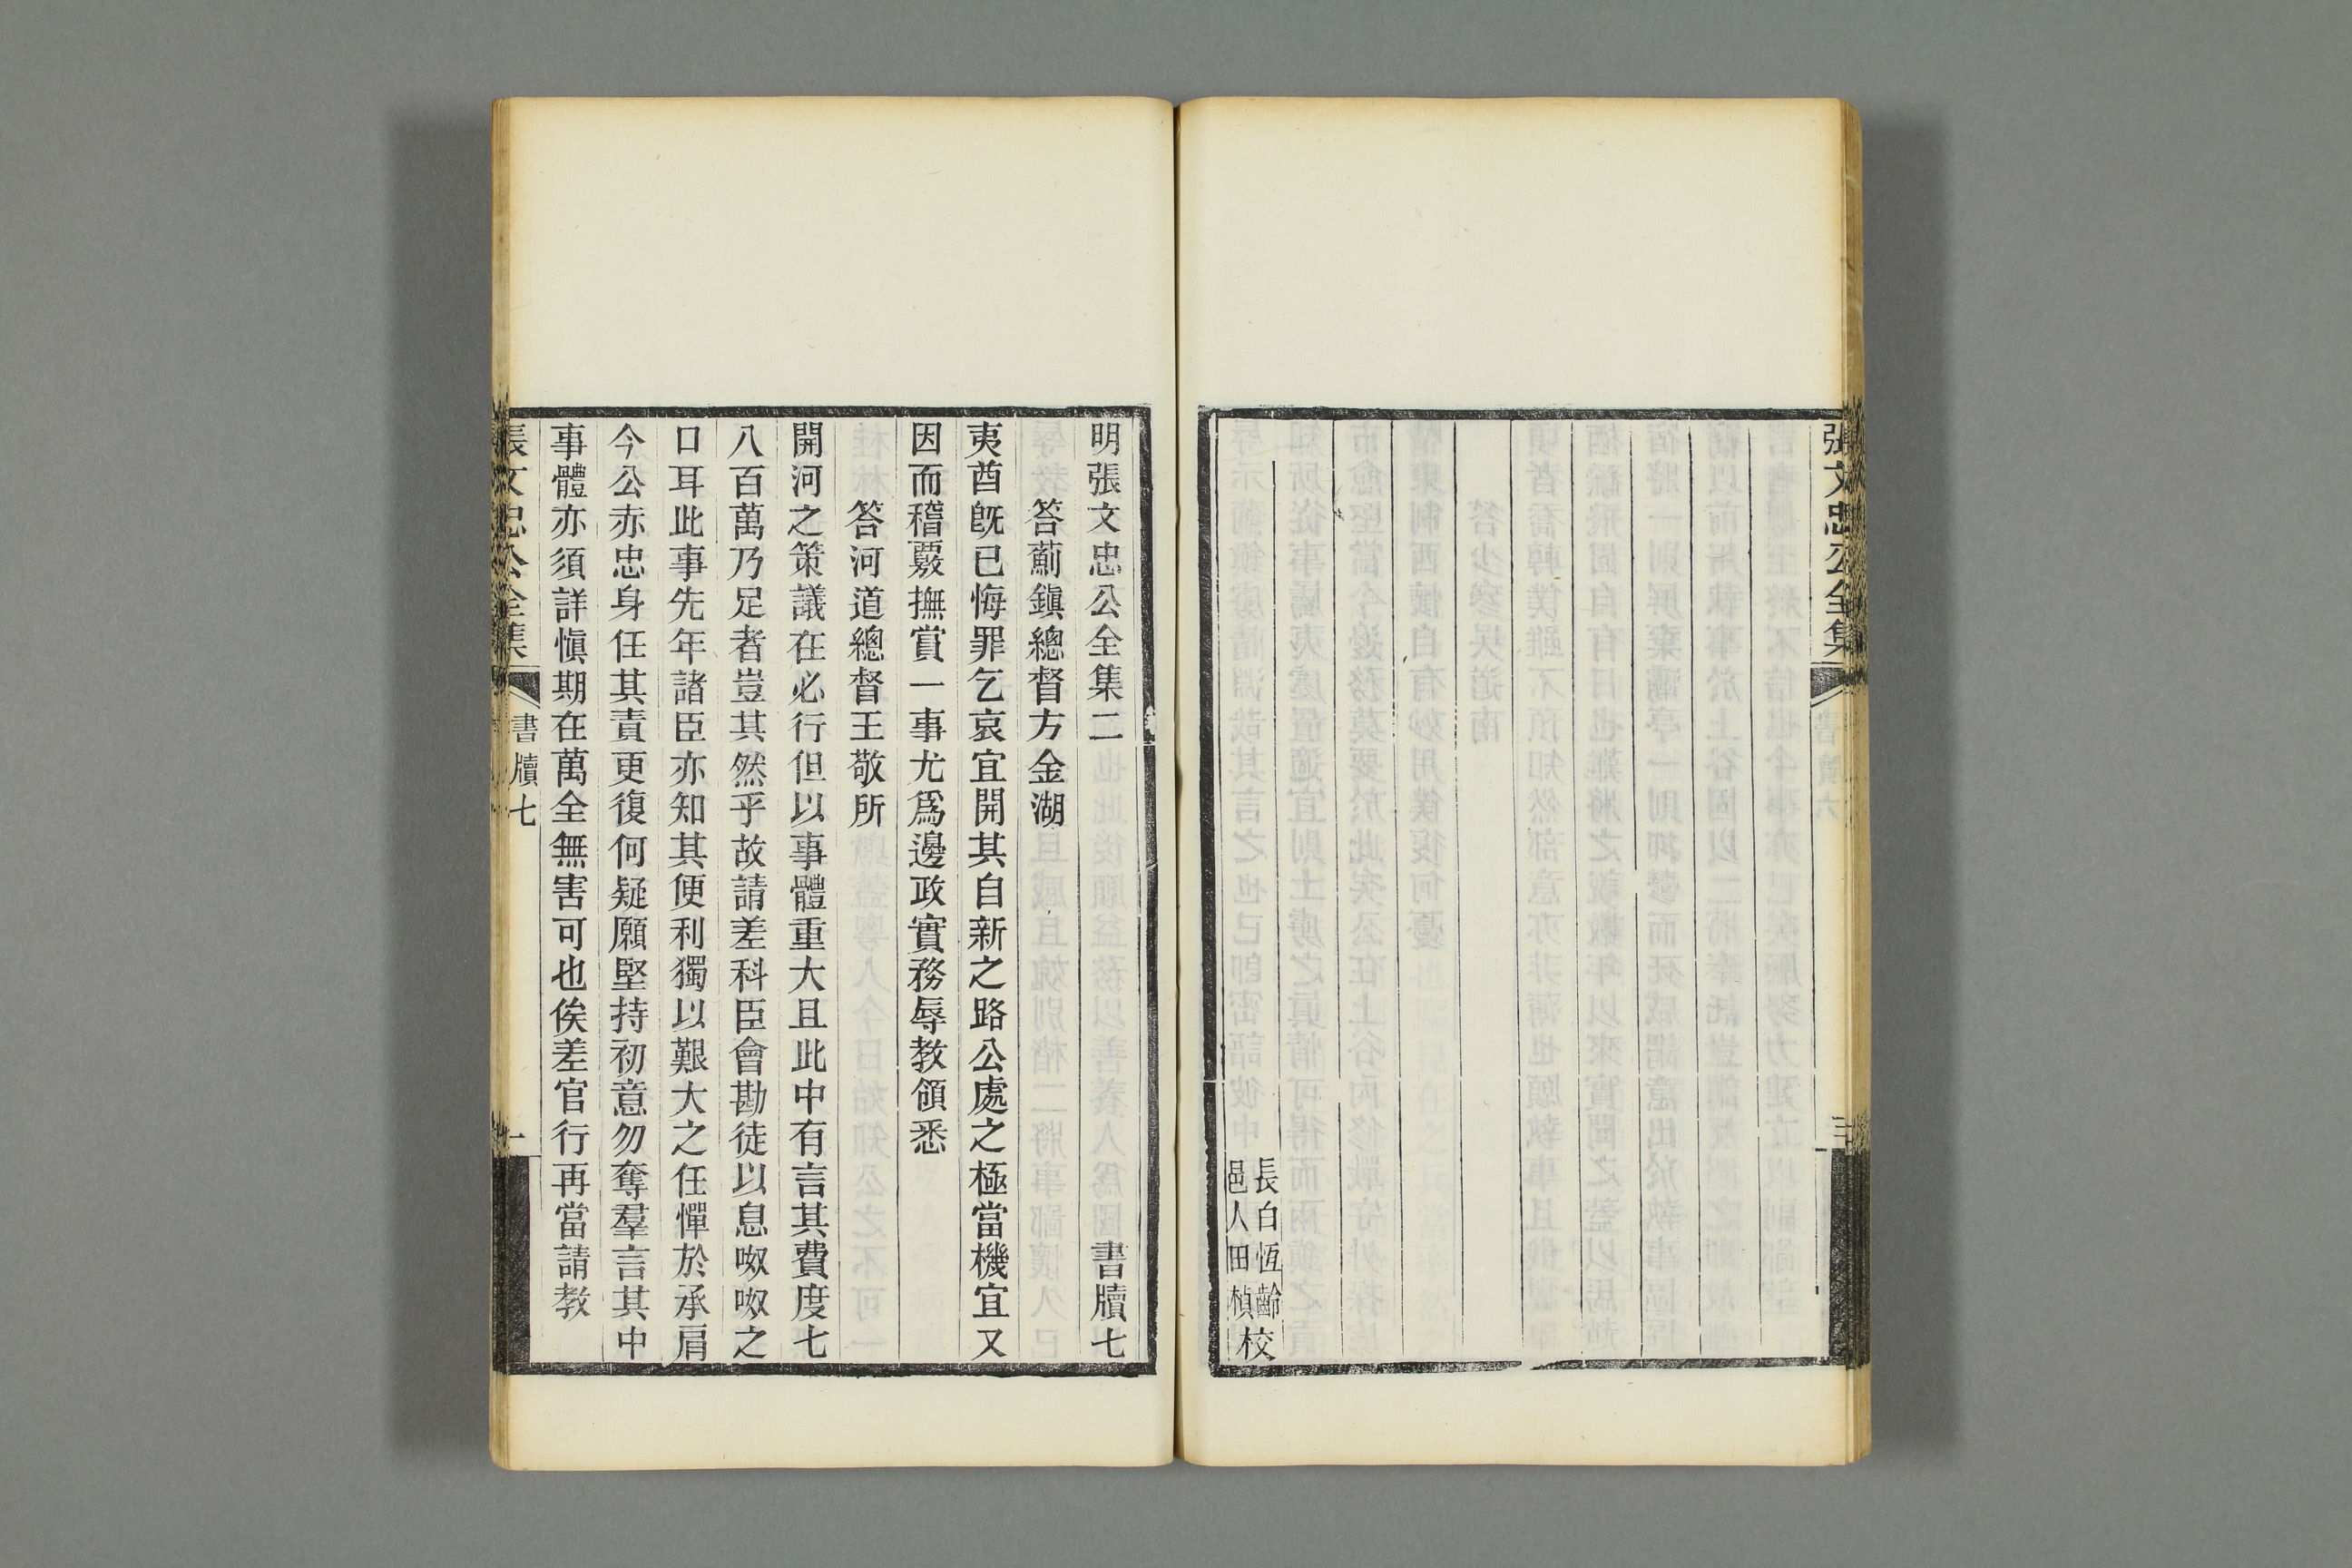 張文忠公全集
長白恆齡
邑人田楨校
明張文忠公全集二 書牘七
答薊鎮總督方金湖
夷酋旣已悔罪乞哀宜開其自新之路公處之極當機宜又
因而稽覈撫賞一事尤爲邊政實務辱教領悉
答河道總督王敬所
開河之策議在必行但以事體重大且此中有言其費度七
八百萬乃足者豈其然乎故請差科臣會勘徒以息呶呶之
口耳此事先年諸臣亦知其便利獨以艱大之任憚於承肩
今公赤忠身任其責更復何疑願堅持初意勿奪羣言其中
事體亦須詳愼期在萬全無害可也俟差官行再當請教
張文忠公全集 書牘七 一